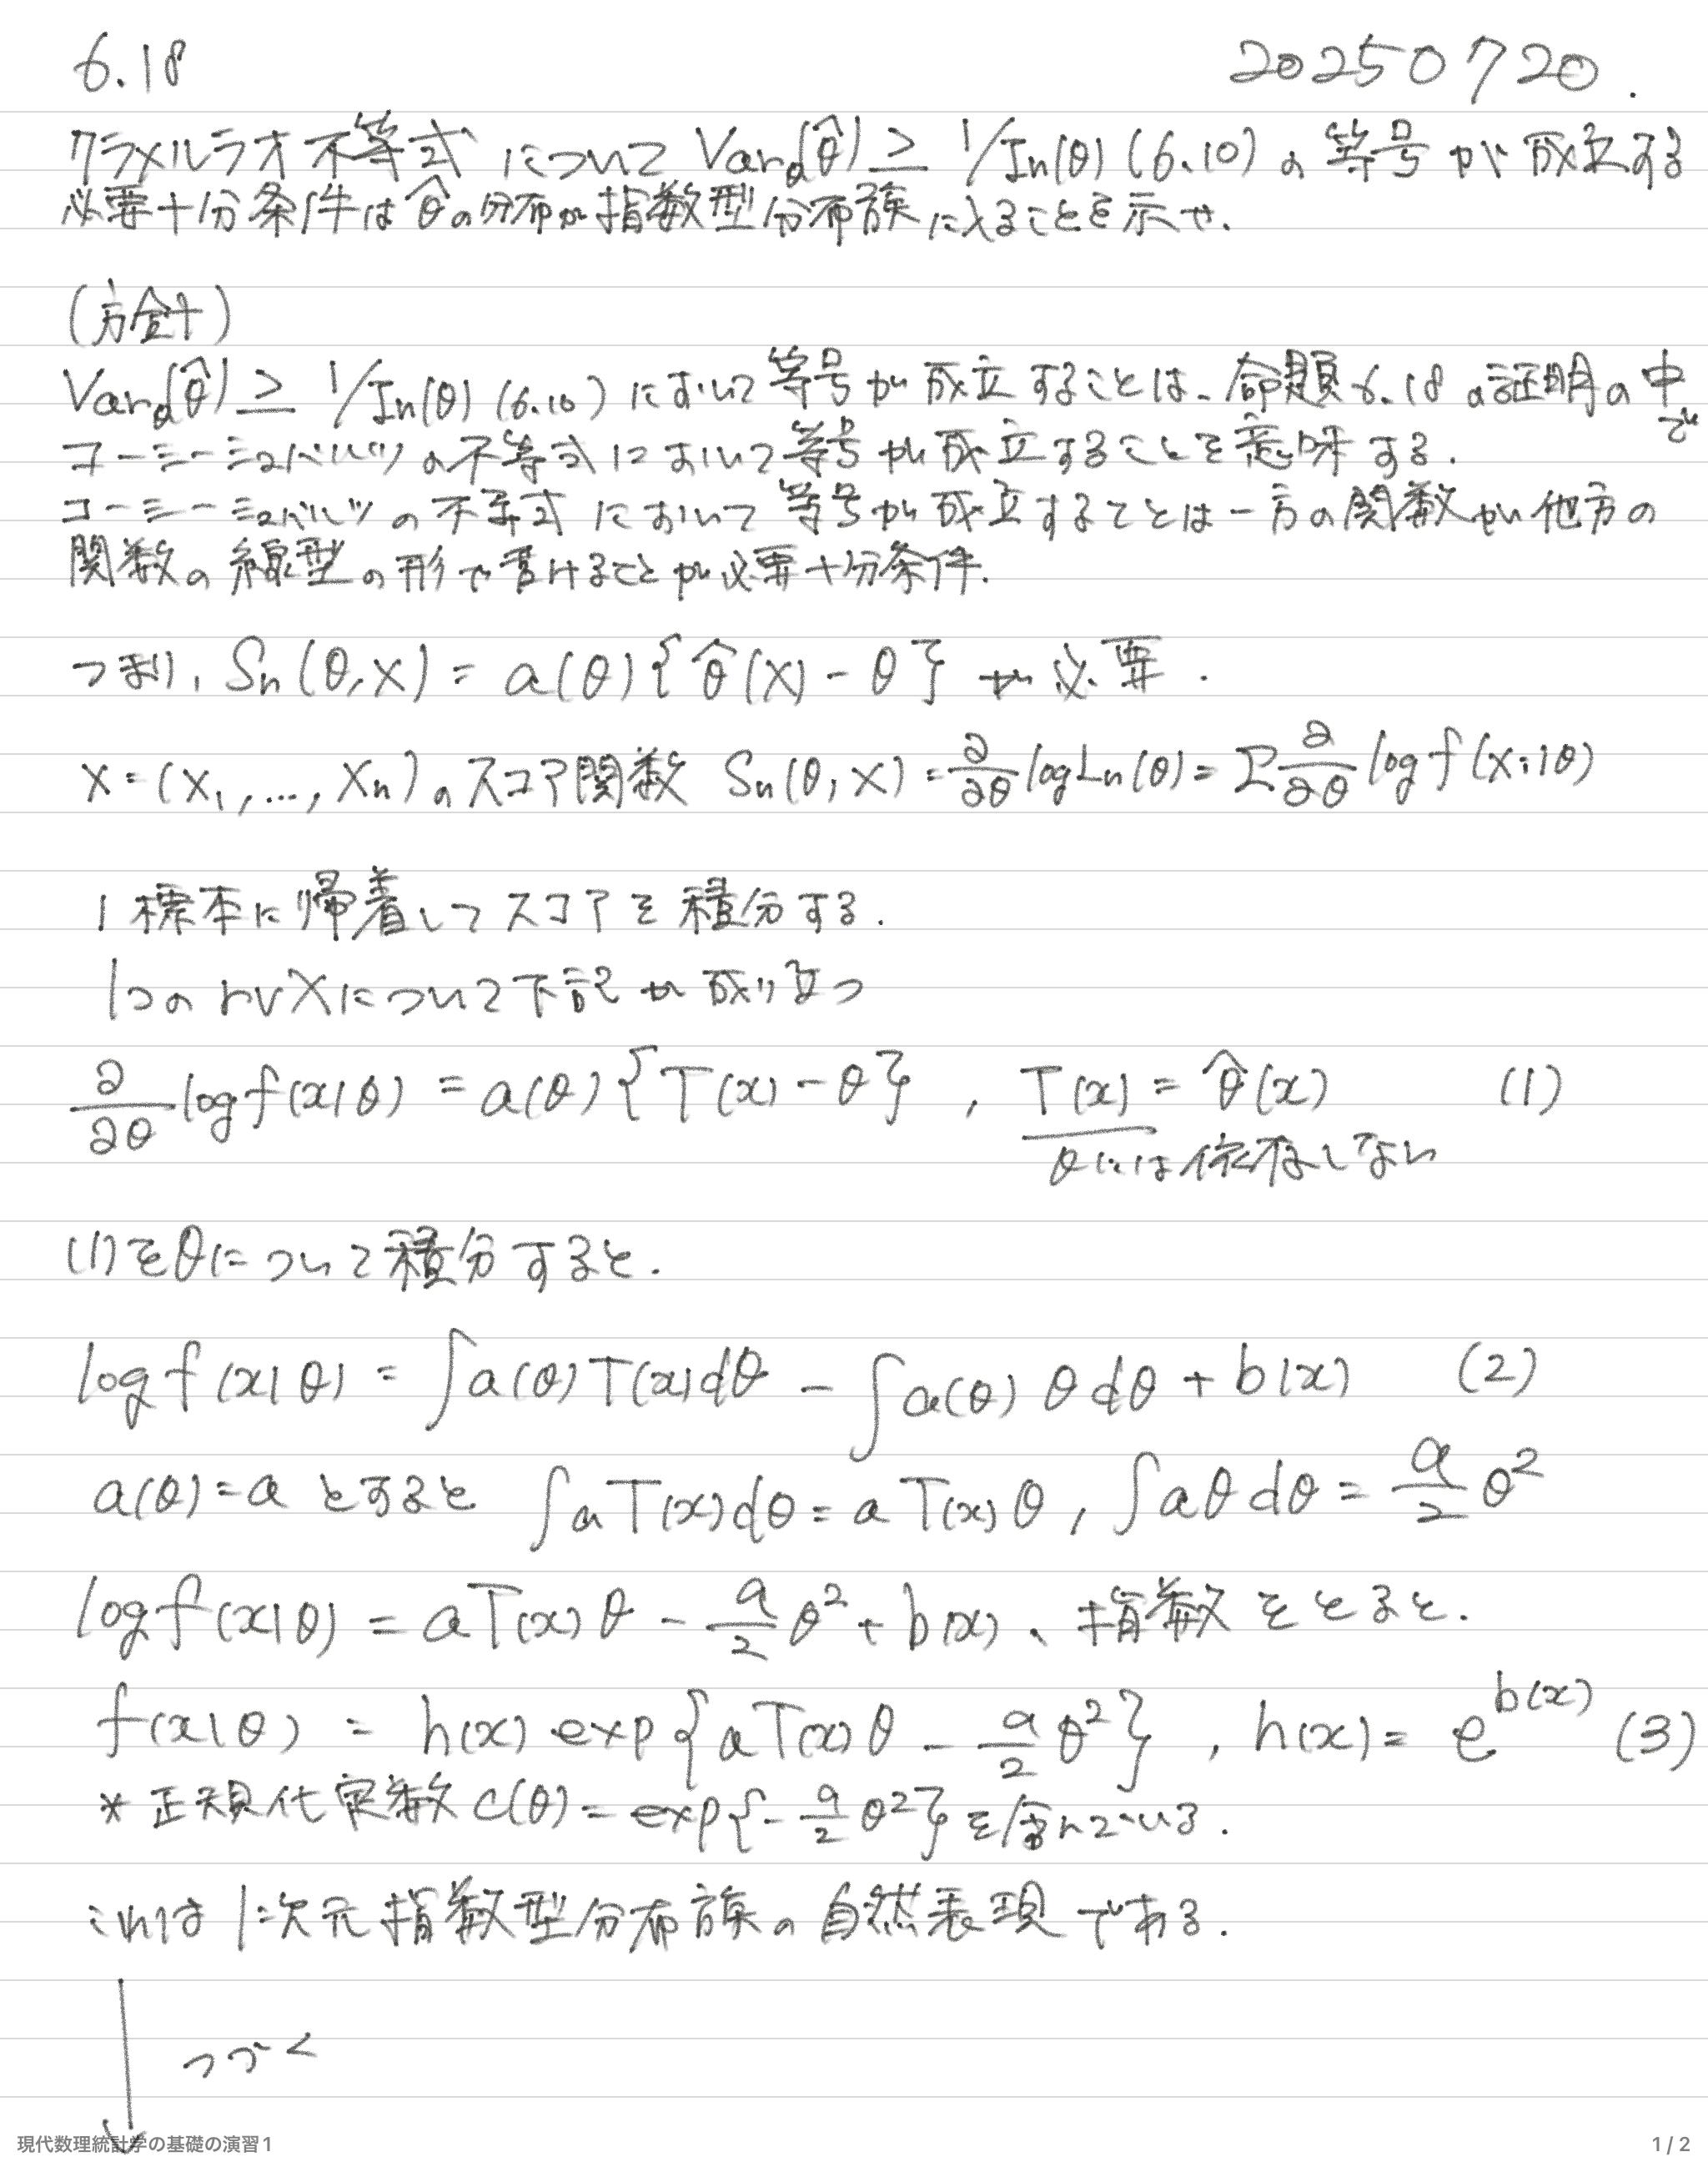 6.18 20250720.
クラメルラオ不等式 について Varθ(θ̂) ≥ 1/In(θ) (6.10) の 等号 が 成立する
必要十分条件は θ̂の分布が指数型分布族に入ることを示せ.
(方針)
Varθ(θ̂) ≥ 1/In(θ) (6.10) において等号が成立することは、命題6.18の証明の中で
コーシーシュバルツの不等式において等号が成立することを意味する.
コーシーシュバルツの不等式において等号が成立することは一方の関数が他方の
関数の線型の形で書けることが必要十分条件.
つまり, Sn(θ,X) = a(θ){θ̂(X) - θ} が必要.
X = (X1, ..., Xn)のスコア関数 Sn(θ,X) = ∂/∂θ logLn(θ) = Σ ∂/∂θ log f(Xi|θ)
1標本に帰着してスコアを積分する.
1つの rv Xについて下記が成り立つ
∂/∂θ log f(x|θ) = a(θ){T(x) - θ} , T(x) = θ̂(x) (1)
θには依存しない
(1)をθについて積分すると.
log f(x|θ) = ∫a(θ)T(x)dθ - ∫a(θ)θdθ + b(x) (2)
a(θ)=a とすると ∫aT(x)dθ = aT(x)θ, ∫aθdθ = a/2 θ²
log f(x|θ) = aT(x)θ - a/2 θ² + b(x)、指数をとると.
f(x|θ) = h(x) exp{aT(x)θ - a/2 θ²} , h(x) = e^b(x) (3)
* 正規化定数 c(θ) = exp{- a/2 θ²} を含んでいる.
これは 1次元指数型分布族の自然表現である.
つづく
現代数理統計学の基礎の演習1 1 / 2